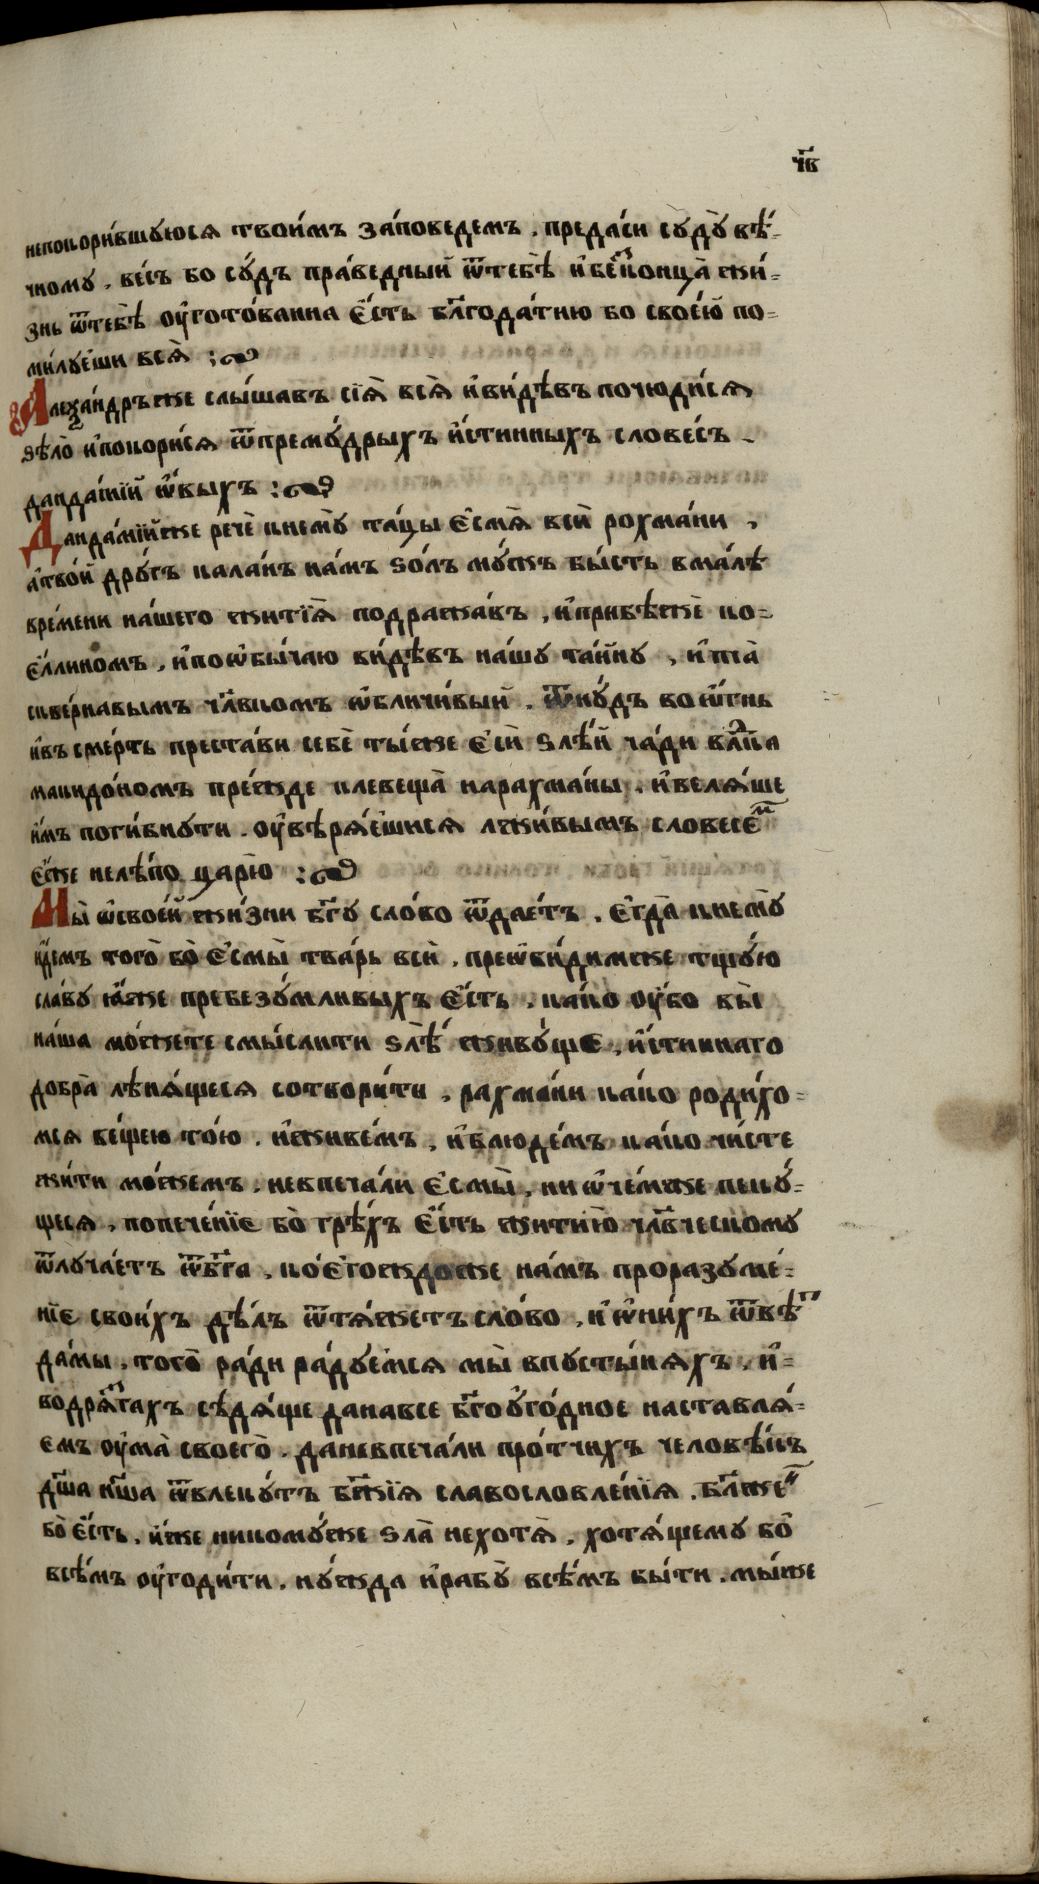 ч҃в
непокори́вшуюся твои́мъ за́поведемъ . преда́си сꙋ́дꙋ вѣ́-
чному . ве́сь бо сꙋ́дъ пра́ведный ѿтебѣ̀ и҆бес̾конца̀ жи́-
знь ѿтебѣ̀ оу҆гото́ванна є҆́сть бл҃года́тию бо свое́ю по-
ми́луеши всѧ̀ :
Алеѯа́ндръже слы́шавъ сїѧ̀ всѧ̀ и҆ви́дѣвъ почюди́сѧ
ѕѣло̀ и҆покори́сѧ ѿпремꙋ́дрыхъ и҆́стинныхъ слове́съ
данда́мїй ѡ҆́выхъ :
Данда́мїйже речѐ кнемꙋ̀ та́цы є҆смѧ̀ всѝ рохма́ни ,
а҆тво́й дрꙋ́гъ кала́нъ на́мъ ѕо́лъ мꙋ́жъ бы́сть вма́лѣ
вре́мени на́шего житїѧ̀ подража́въ , и҆прибѣ́жѐ ко-
є҆́ллиномъ , и҆поѡ҆бы́чаю ви́дѣвъ на́шу та́йну , и҆ та̀
скве́рнавымъ чл҃вкомъ ѡ҆бличи́вый . ѿнꙋ́дъ во ѻ҆́гнь
и҆въ сме́рть преста́ви себѐ ты́же є҆сѝ ѕлѣ́й ча́ди вл҃дка
македо́номъ пре́жде клевеща̀ нарахма́ны . и҆велѧ́ше
и҆́мъ поги́бнути . оу҆вѣрѧ́ешисѧ лжи́вымъ словесе́м
є҆́же нелѣ́по царю̀ :
Мы̀ ѡ҆свое́й жи́зни бг҃у сло́во ѿдае́тъ . є҆гда̀ кнемꙋ̀
и҆́демъ того̀ бо̀ є҆смы̀ тва́рь всѝ . преѡ҆би́димже тщꙋ́ю
сла́ву ꙗ҆́же пребезꙋ́мливыхъ є҆́сть , ка́ко оу҆́бо вы̀
на́ша мо́жете смы́слити ѕлѣ̀ живꙋ́ще , и҆́стиннаго
добра̀ лѣнѧ́щесѧ сотвори́ти , рахма́ни ка́ко роди́хо-
мсѧ ве́щею то́ю . и҆живе́мъ , и҆блюде́мъ ка́ко чи́сте
жи́ти мо́жемъ . невпеча́ли є҆смы̀ , ни ѡ҆че́мже пекꙋ́-
щесѧ , попече́нїе бо̀ грѣ́хъ є҆́сть житию̀ чл҃вческому
ѿлуча́етъ ѿбг҃а , ко́єгождоже на́мъ проразуме́-
нїе свои́хъ дѣ́лъ ѿтѧ́жетъ сло́во , и҆ ѡ҆ни́хъ ѿвѣт
да́мы , того̀ ра́ди ра́дуемсѧ мы̀ впусты́нѧхъ , и҆-
водрѧзгахъ сѣдѧ́ще данавсе бг҃оуго́дное наставлѧ́-
емъ оу҆ма̀ своего̀ . даневпеча́ли про́тчихъ человѣ́къ
дш҃а нш҃а ѿвлекꙋ́тъ бж҃їѧ славословле́нїѧ . бл҃жен
бо̀ є҆́сть , и҆́же никомꙋ́же ѕла̀ нехотѧ̀ , хотѧ́щему бо̀
всѣ́мъ оу҆годи́ти , нꙋ́жда и҆рабꙋ̀ всѣ́мъ бы́ти . мы́же